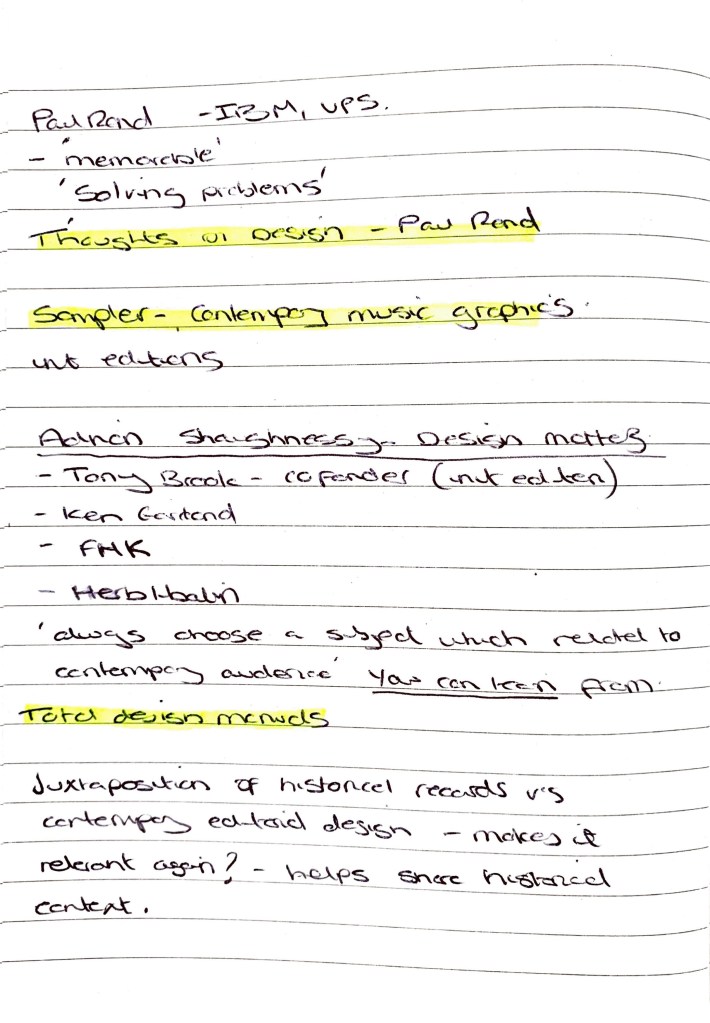 Paul Rand - IBM, UPS.
- 'memorable'
'Solving problems'
Thoughts on Design - Paul Rand
Sampler - Contempory music graphics.
unit editions
Adrian Shaughnessy - Design matters
- Tony Brook - cofounder (unit edition)
- Ken Garland
- FHK
- Herb Lubalin
'always choose a subject which relates to
contempory audience' You can learn from.
Total design manuals
Juxtaposition of historical records v's
contempory editorial design - makes it
relevant again? - helps share historical
content.